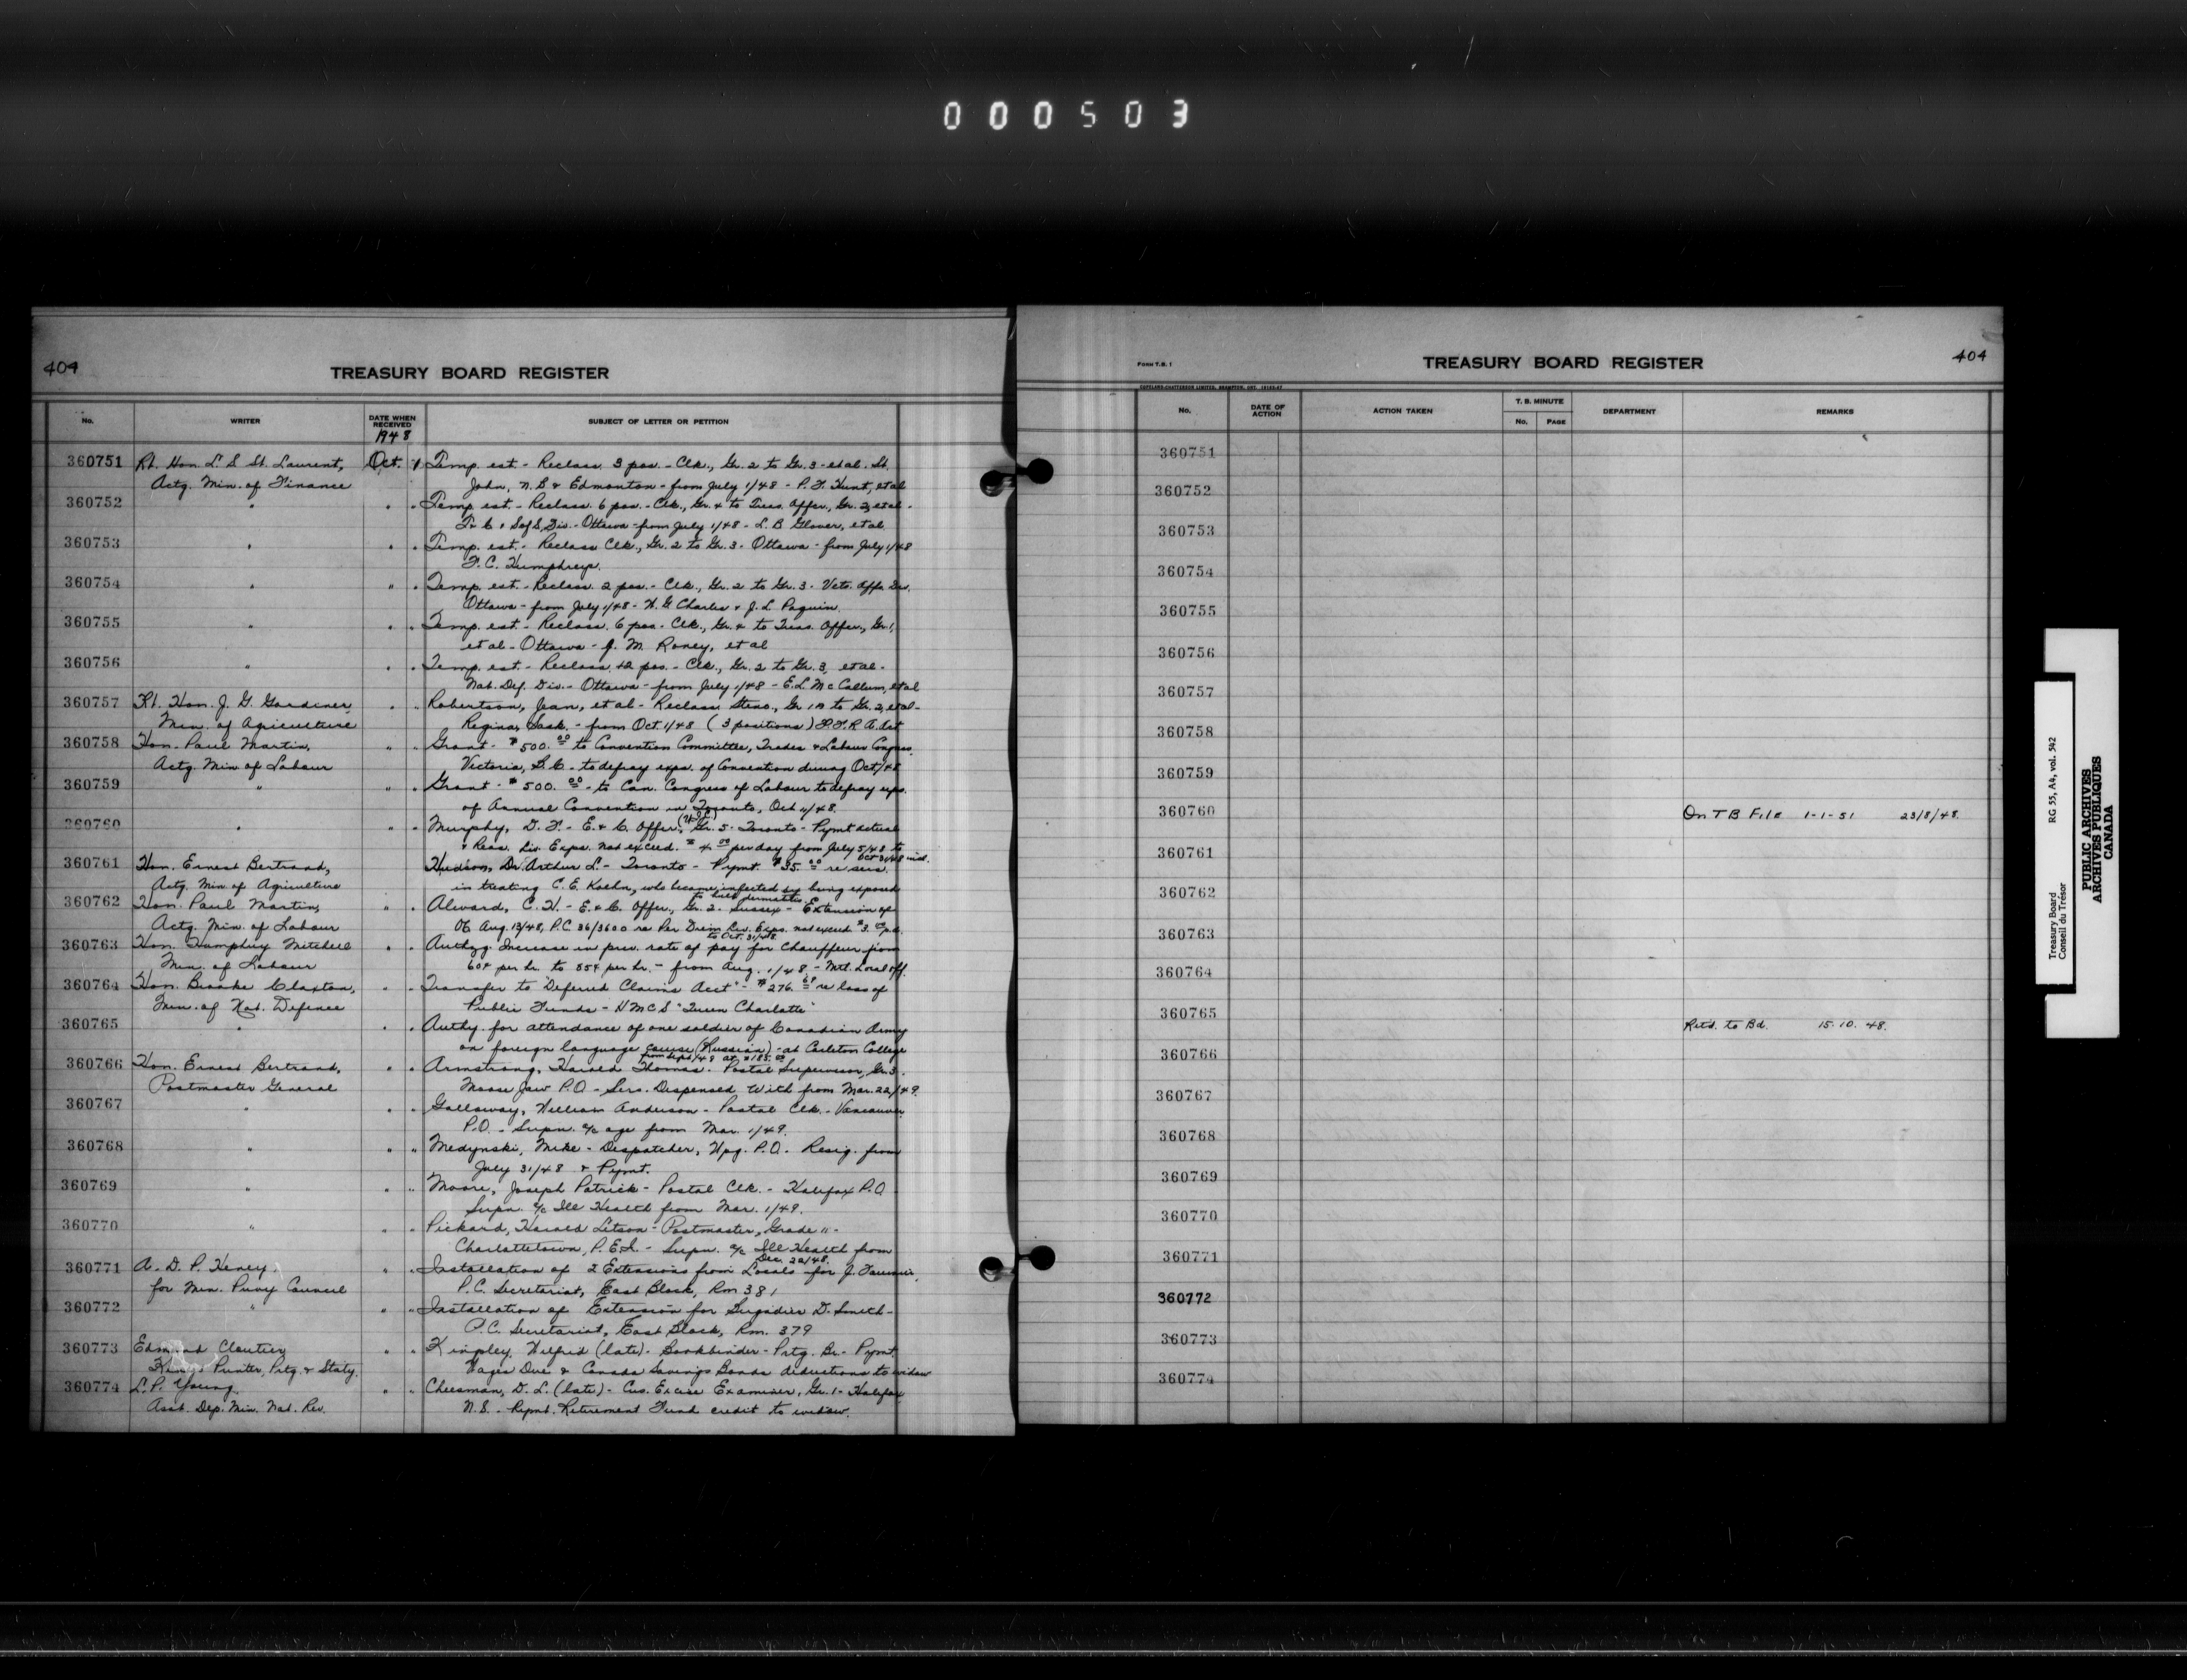 000503
404
TREASURY BOARD REGISTER
No.
WRITER
DATE WHEN RECEIVED
1948
SUBJECT OF LETTER OR PETITION
360751 Rt. Hon. L. S. St. Laurent, Oct. 1 Temp. est. - Reclass. 3 pos. - Clk., Gr. 2 to Gr. 3 - et al. St.
Actg. Min. of Finance John, N.B. & Edmonton - from July 1/48 - P. F. Hunt, et al
360752 " " " Temp. est. - Reclass. 6 pos. - Clk., Gr. 4 to Treas. Offcr., Gr. 2, et al -
Div. - Ottawa - from July 1/48 - L. B. Glover, et al.
360753 " " " Temp. est. - Reclass Clk., Gr. 2 to Gr. 3 - Ottawa - from July 1/48
F. C. Humphreys.
360754 " " " Temp. est. - Reclass. 2 pos. - Clk., Gr. 2 to Gr. 3 - Vets. Affs. Div.
Ottawa - from July 1/48 - H. G. Charles & J. L. Paquin.
360755 " " " Temp. est. - Reclass. 6 pos. - Clk., Gr. 4 to Treas. Offcr., Gr. 1,
et al - Ottawa - J. M. Roney, et al
360756 " " " Temp. est. - Reclass. 12 pos. - Clk., Gr. 2 to Gr. 3, et al -
Nat. Def. Div. - Ottawa - from July 1/48 - E. L. McCallum, et al
360757 Rt. Hon. J. G. Gardiner, " " Robertson, Jean, et al - Reclass. Steno., Gr 1B to Gr. 2, et al -
Min. of Agriculture Regina, Sask. - from Oct. 1/48 (3 positions) P.F.R.A. Act
360758 Hon. Paul Martin, " " Grant - $500.00 to Convention Committee, Trades & Labour Congress,
Actg. Min of Labour Victoria, B.C. - to defray exps. of Convention during Oct/48
360759 " " " Grant - $500.00 - to Can. Congress of Labour to defray exps.
of Annual Convention in Toronto, Oct 11/48.
360760 " " " Murphy, D. F. - E. & C. Offcr., Gr. 5 - Toronto - Pymt actual
& Reas. Liv. Exps. not exceed. $4.00 per day from July 5/48 to
Oct 31/48 incl.
360761 Hon. Ernest Bertrand, Hudson, Dr. Arthur L. - Toronto - Pymt. $35.00 re servs.
Actg. Min of Agriculture in treating C. E. Koehn, who became infected by being exposed
to bulb dermatitis.
360762 Hon. Paul Martin, " " Alward, C. H. - E. & C. Offcr., Gr. 2 - Sussex - Extension of
Actg. Min. of Labour Aug. 13/48, P.C. 36/3600 re Per Diem Liv. Exps. not exceed $3.00 p.d.
to Oct. 31/48.
360763 Hon. Humphrey Mitchell " " Authzg. Increase in prev. rate of pay for Chauffeur from
Min. of Labour 60¢ per hr. to 85¢ per hr. - from Aug. 1/48. - Mtl. Local off.
360764 Hon. Brooke Claxton, " " Transfer to "Deferred Claims Acct" - $276.69 re loss of
Min. of Nat. Defence Public Funds - H M C S "Queen Charlotte"
360765 " " " Authy. for attendance of one soldier of Canadian Army
on foreign language course (Russian) - at Carleton College
from Sept/48 at $185.00
360766 Hon. Ernest Bertrand, " " Armstrong, Harold Thomas - Postal Supervisor, Gr. 3.
Postmaster General Moose Jaw P.O. - Servs. Dispensed With from Mar. 22/49.
360767 " " " Galloway, William Anderson - Postal Clk. - Vancouver
P.O. - Supn. a/c age from Mar. 1/49.
360768 " " " Medynski, Mike - Despatcher, Wpg. P.O. Resig. from
July 31/48 & Pymt.
360769 " " " Moore, Joseph Patrick - Postal Clk. - Halifax P.O.
Supn. a/c Ill Health from Mar. 1/49.
360770 " " " Pickard, Harold Letson - Postmaster, Grade 11 -
Charlottetown, P.E.I. - Supn. a/c Ill Health from
Dec. 20/48.
360771 A. D. P. Heney " " Installation of 2 Extensions from Locals for J. Fournier,
for Min. Privy Council P.C. Secretariat, East Block, Rm 381
360772 " " " Installation of Extension for D. Smith -
P.C. Secretariat, East Block, Rm. 379
360773 Edmond Cloutier " " Kingley, Wilfrid (late) - Bookbinder - Prtg. Br. - Pymt.
King's Printer, Prtg. & Staty. Wages Due & Canada Savings Bonds deductions to widow
360774 L. P. Young. " " Cheesman, D. L. (late) - Cus. Excise Examiner, Gr. 1 - Halifax
Asst. Dep. Min. Nat. Rev. N.S. - Repmt. Retirement Fund credit to widow.
FORM T.B. 1
TREASURY BOARD REGISTER
404
COPELAND-CHATTERSON LIMITED, BRAMPTON, ONT.
No.
DATE OF ACTION
ACTION TAKEN
T. B. MINUTE
No. PAGE
DEPARTMENT
REMARKS
360751
360752
360753
360754
360755
360756
360757
360758
360759
360760 On T B File 1-1-51 23/8/48.
360761
360762
360763
360764
360765
Ret'd. to Bd. 15. 10. 48.
360766
360767
360768
360769
360770
360771
360772
360773
360774
Treasury Board RG 55, A4, vol. 542
Conseil du Trésor
PUBLIC ARCHIVES
ARCHIVES PUBLIQUES
CANADA